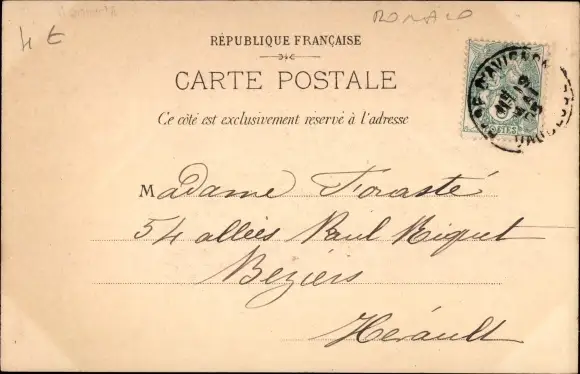 4 €
ROMALO
RÉPUBLIQUE FRANÇAISE
CARTE POSTALE
Ce côté est exclusivement réservé à l'adresse
D'AVIGNON
Madame Forasté
54 allées Paul Riquet
Béziers
Hérault